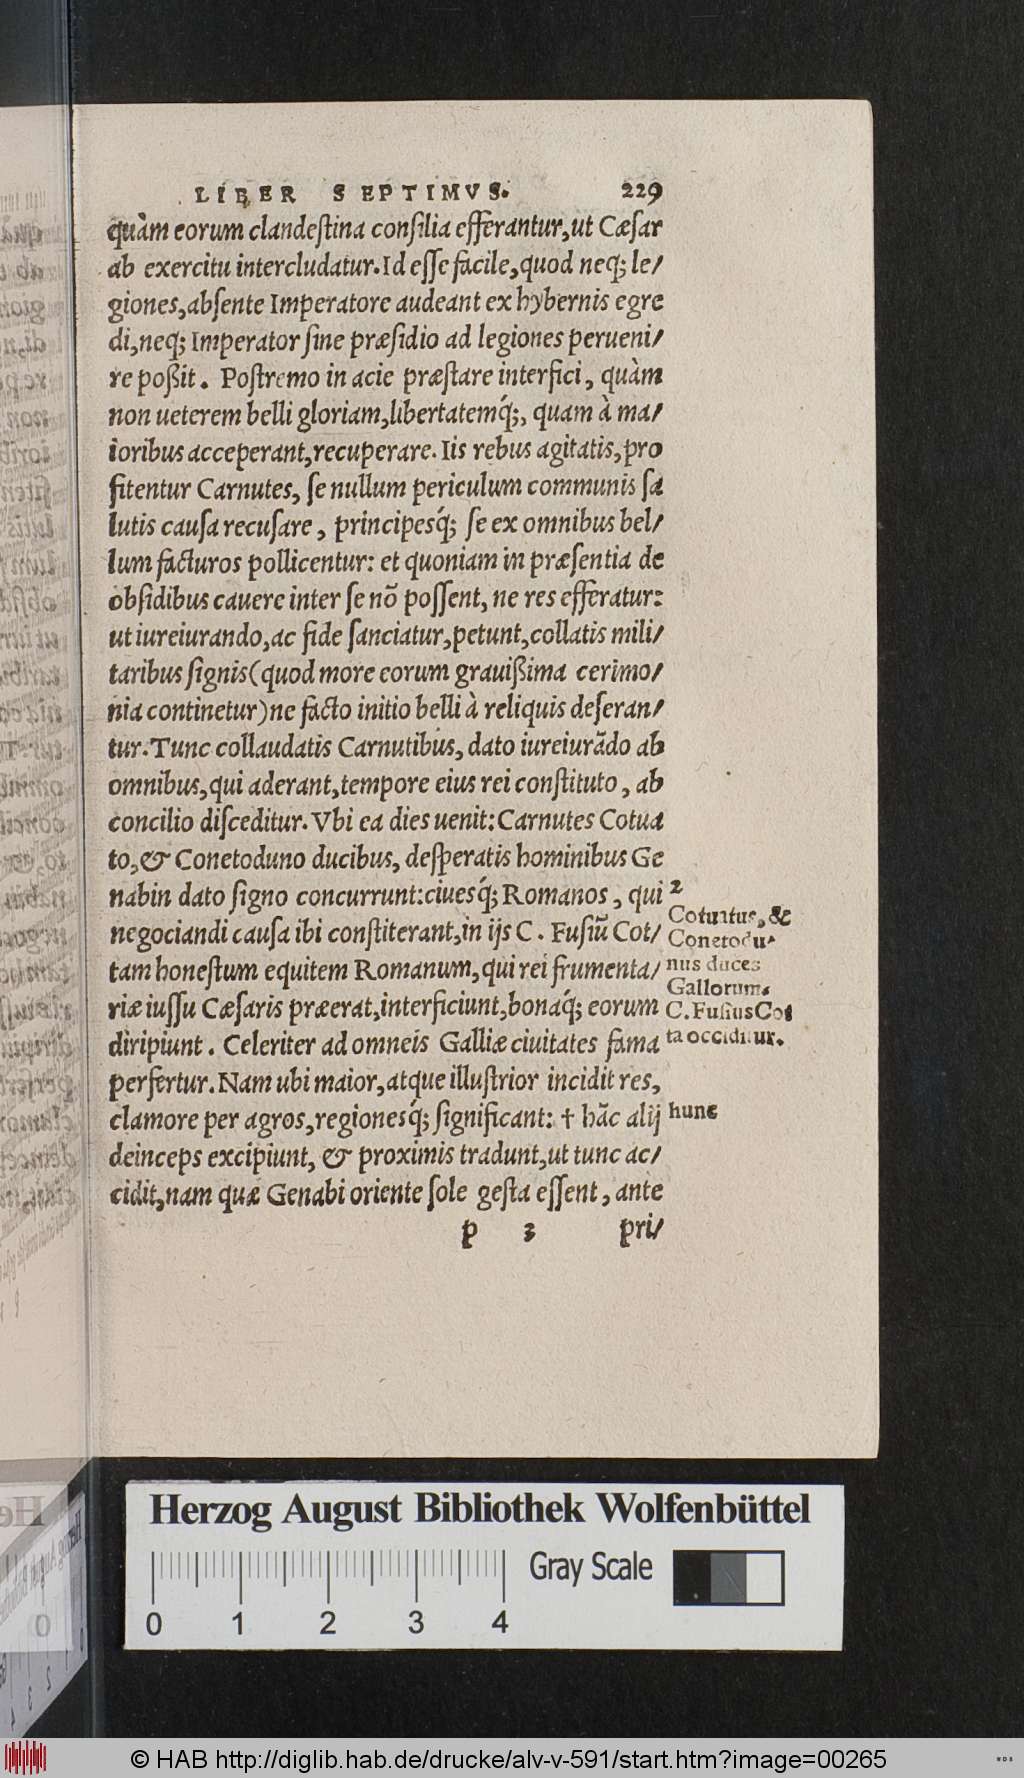 LIBER SEPTIMVS. 229
quàm eorum clandeſtina conſilia efferantur,ut Cæſar
ab exercitu intercludatur.Id eſſe facile,quod neq; le/
giones,abſente Imperatore audeant ex hybernis egre
di,neq; Imperator ſine præſidio ad legiones perueni/
re poßit. Poſtremo in acie præſtare interfici, quàm
non ueterem belli gloriam,libertatemq́;, quam à ma/
ioribus acceperant,recuperare. Iis rebus agitatis,pro
fitentur Carnutes, ſe nullum periculum communis ſa
lutis cauſa recuſare, principesq́; ſe ex omnibus bel/
lum facturos pollicentur: et quoniam in præſentia de
obſidibus cauere inter ſe nō poſſent, ne res efferatur:
ut iureiurando,ac fide ſanciatur,petunt,collatis mili/
taribus ſignis(quod more eorum grauißima cerimo/
nia continetur)ne facto initio belli à reliquis deſeran/
tur.Tunc collaudatis Carnutibus, dato iureiurādo ab
omnibus,qui aderant,tempore eius rei conſtituto, ab
concilio diſceditur.Vbi ea dies uenit:Carnutes Cotua
to,& Conetoduno ducibus, deſperatis hominibus Ge
nabin dato ſigno concurrunt:ciuesq́; Romanos, qui
negociandi cauſa ibi conſtiterant,in ijs C. Fuſiū Cot/
tam honeſtum equitem Romanum,qui rei frumenta/
riæ iuſſu Cæſaris præerat,interficiunt,bonaq́; eorum
diripiunt. Celeriter ad omneis Galliæ ciuitates fama
perfertur.Nam ubi maior,atque illuſtrior incidit res,
clamore per agros,regionesq́; ſignificant: † hāc alij
deinceps excipiunt, & proximis tradunt,ut tunc ac/
cidit,nam quæ Genabi oriente ſole geſta eſſent, ante
p 3 pri/
2
Cotuatus, &
Conetodu-
nus duces
Gallorum.
C. Fuſius Cot
ta occiditur.
hunc
Herzog August Bibliothek Wolfenbüttel
Gray Scale
0 1 2 3 4
© HAB http://diglib.hab.de/drucke/alv-v-591/start.htm?image=00265